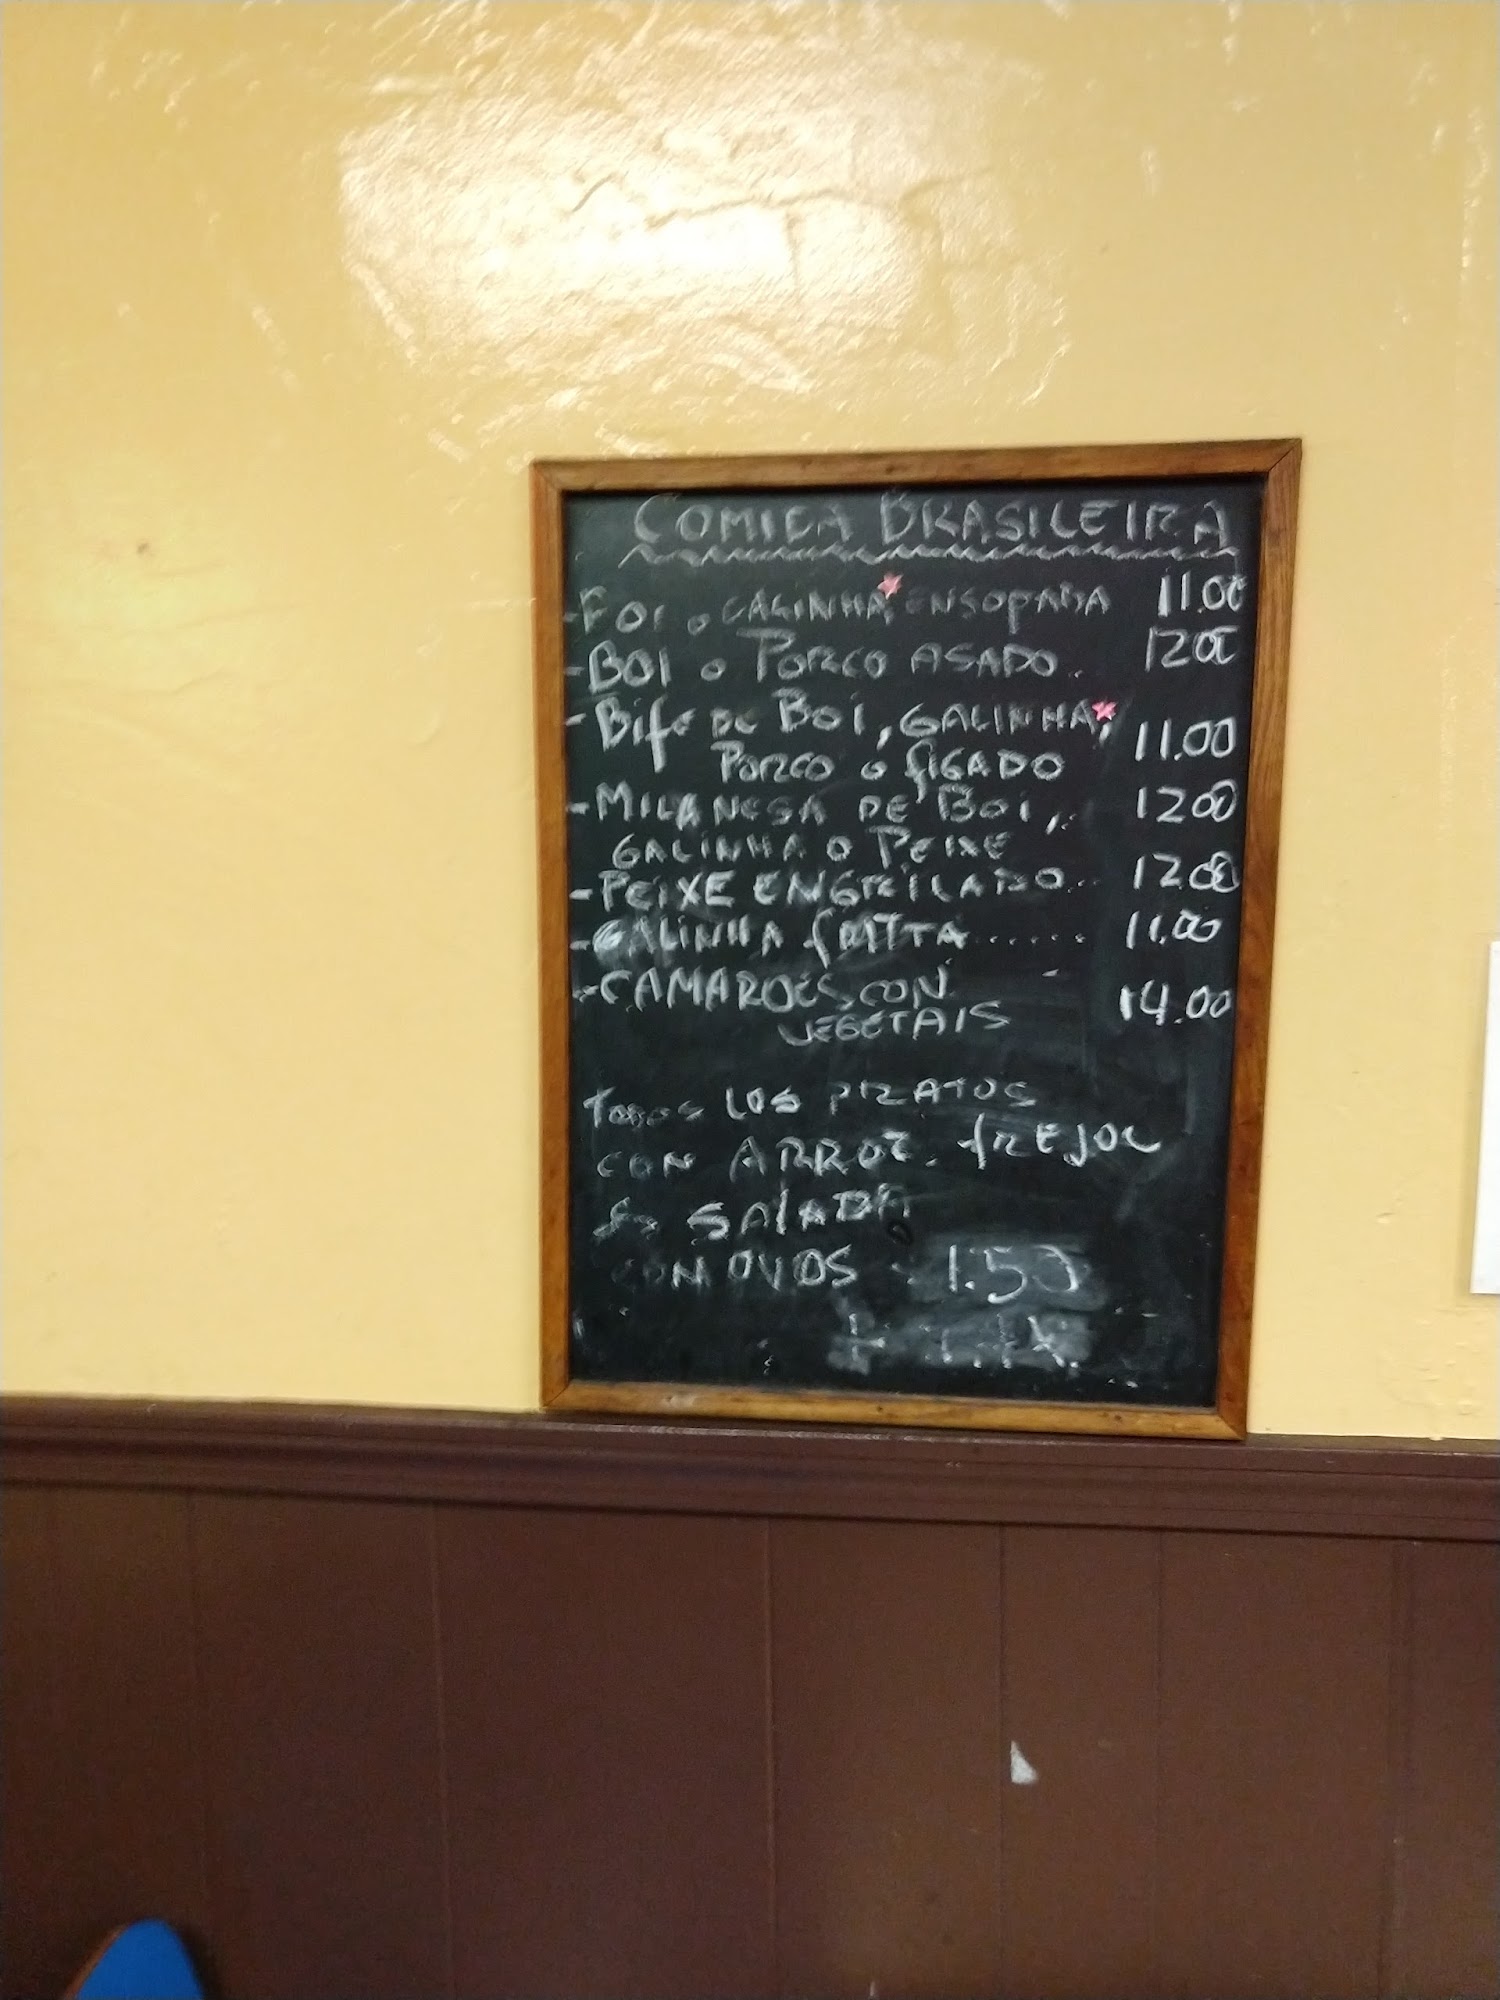 COMIDA BRASILEIRA
- BOI o GALINHA ENSOPADA 11.00
- BOI o PORCO ASADO. 12.00
- Bife DE BOI, GALINHA,
PORCO o fIGADO 11.00
- MILANESA DE BOI, 12.00
GALINHA O PEIXE
- PEIXE ENGRILADO.. 12.00
- GALINHA fRITTA...... 11.00
- CAMAROES CON 14.00
VEGETAIS
TODOS LOS PRATOS
CON ARROZ. fREJOL
SALADA
CON OVOS - 1.50